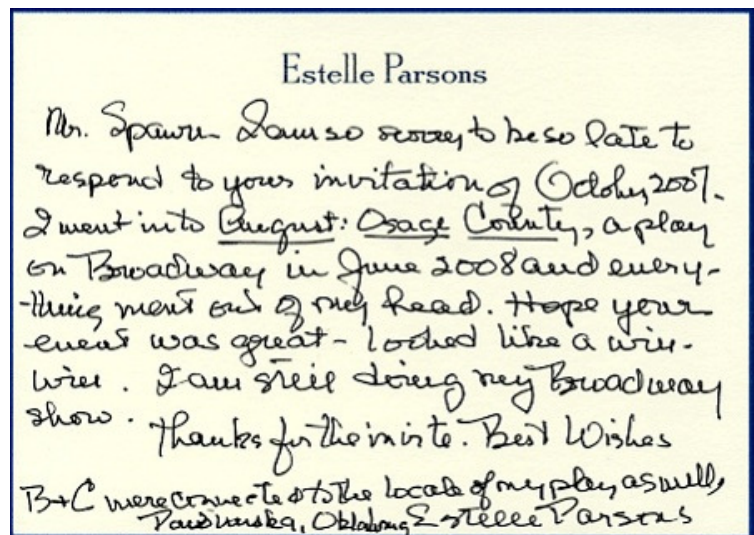 Estelle Parsons
Mr. Spawn - I am so sorry to be so late to
respond to your invitation of October, 2007.
I went into August: Osage County, a play
on Broadway in June 2008 and every-
-thing went out of my head. Hope your
event was great - looked like a win-
win. I am still doing my Broadway
show.
Thanks for the invite. Best Wishes
B+C were connected to the locale of my play, as well,
Pawhuska, Oklahoma Estelle Parsons